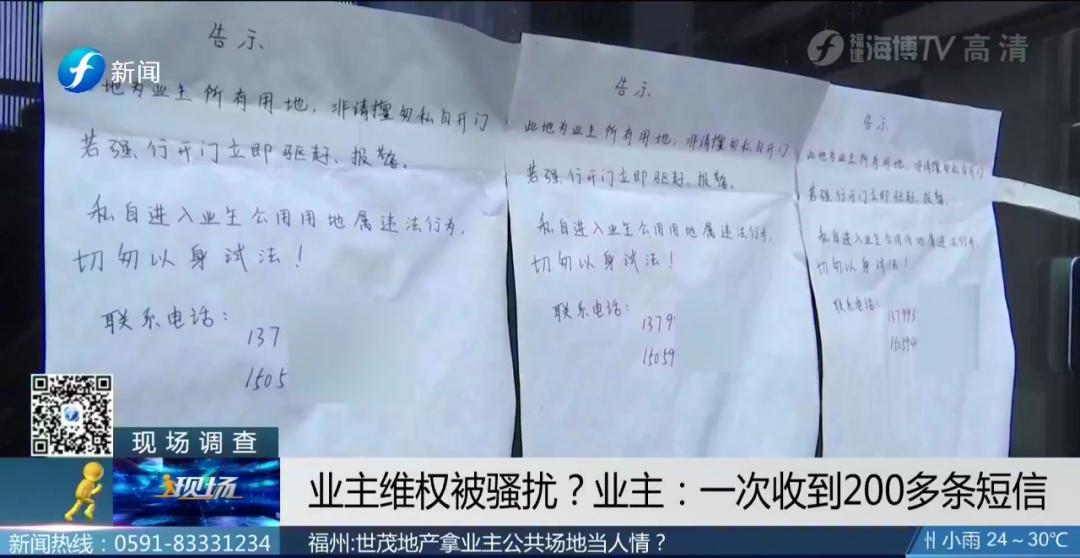 新闻
福建
海博TV 高清
告示
地为业主所有用地，非请擅勿私自开门
若强行开门立即驱赶、报警。
私自进入业主公用用地属违法行为，
切勿以身试法！
联系电话：
137
1505
告示
此地为业主所有用地，非请擅勿私自开门
若强行开门立即驱赶、报警。
私自进入业主公用用地属违法行为，
切勿以身试法！
联系电话：
1379
15059
告示
此地为业主所有用地，非请擅勿私自开门
若强行开门立即驱赶、报警。
私自进入业主公用用地属违法行为，
切勿以身试法！
联系电话：
137993
150594
现场调查
现场
业主维权被骚扰？业主：一次收到200多条短信
新闻热线：0591-83331234
福州:世茂地产拿业主公共场地当人情？
州 小雨 24～30℃